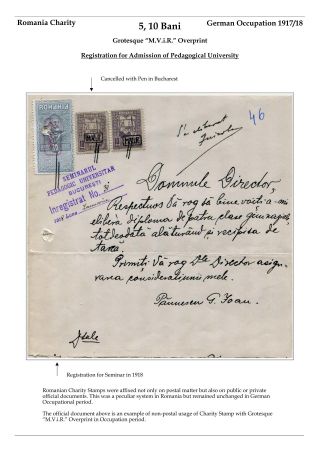 Romania Charity
5, 10 Bani
German Occupation 1917/18
Grotesque “M.V.i.R.” Overprint
Registration for Admission of Pedagogical University
Cancelled with Pen in Bucharest
46
ROMANIA
SEMINARUL
PEDAGOGIC UNIVERSITAR
BUCUREȘTI
Inregistrat No.
191 Luna
Domnule Director,
Respectuos Vă rog să bine voiți a-mi
elibera diploma de patru clase
totdeodată alăturând și recipisa de
taxă.
Primiți Vă rog Dle Director asigu-
rarea considerațiunii mele.
G. Ioan.
Registration for Seminar in 1918
Romanian Charity Stamps were affixed not only on postal matter but also on public or private
official documents. This was a peculiar system in Romania but remained unchanged in German
Occupational period.
The official document above is an example of non-postal usage of Charity Stamp with Grotesque
“M.V.i.R.” Overprint in Occupation period.